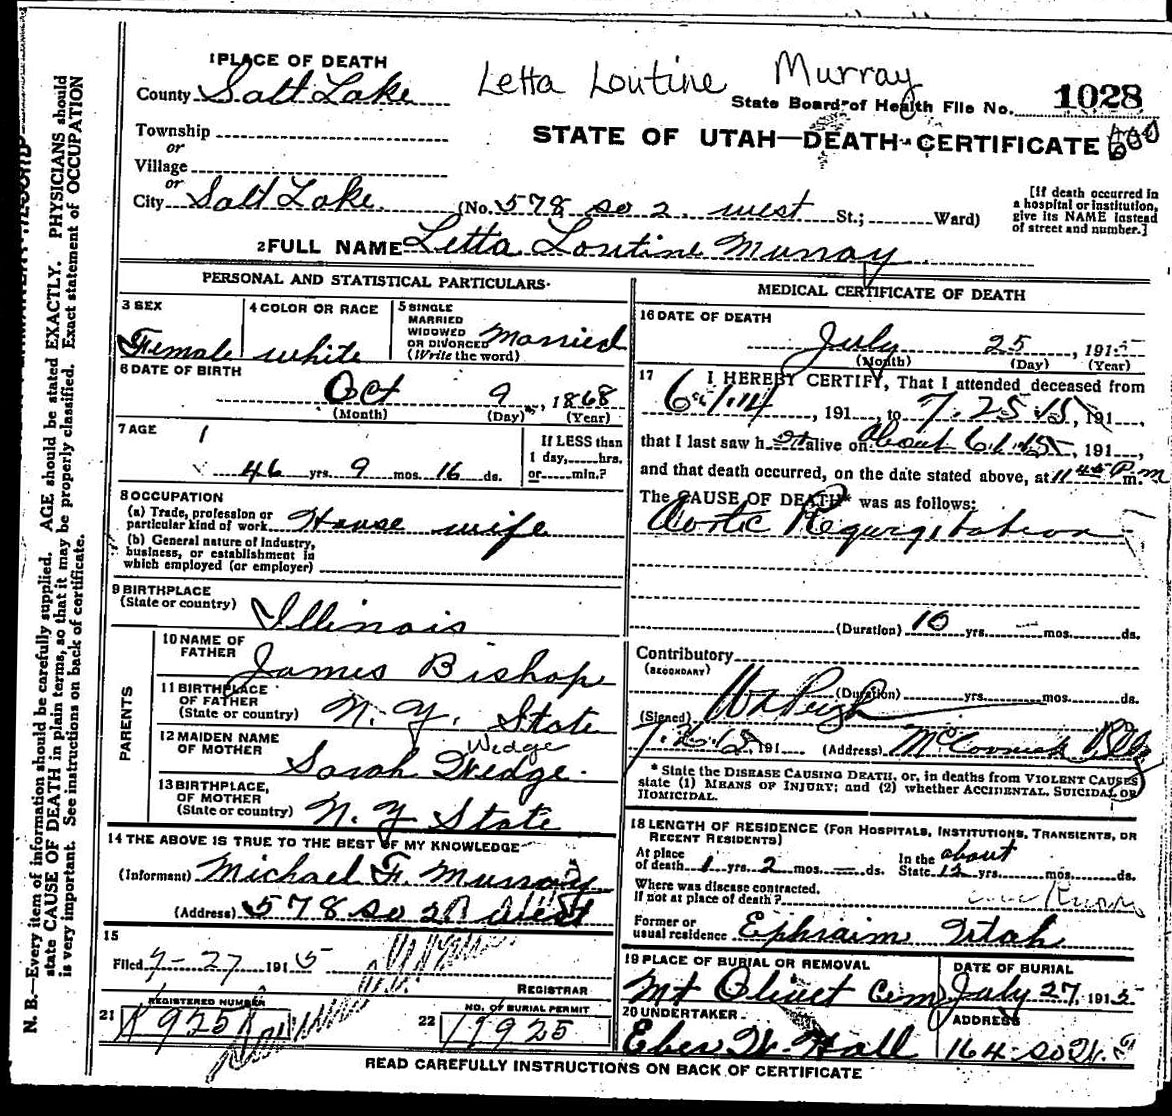 1 PLACE OF DEATH
County Salt Lake
Letta Loutine Murray
State Board of Health File No. 1028
Township
or
Village
or
STATE OF UTAH—DEATH CERTIFICATE
City Salt Lake (No. 578 So 2 west St.; Ward)
[If death occurred in a hospital or institution, give its NAME instead of street and number.]
2 FULL NAME Letta Loutine Murray
PERSONAL AND STATISTICAL PARTICULARS
3 SEX Female
4 COLOR OR RACE white
5 SINGLE MARRIED WIDOWED OR DIVORCED (Write the word) Married
6 DATE OF BIRTH Oct 9, 1868
(Month) (Day) (Year)
7 AGE
46 yrs. 9 mos. 16 ds.
If LESS than 1 day, hrs. or min.?
8 OCCUPATION
(a) Trade, profession or particular kind of work House wife
(b) General nature of industry, business, or establishment in which employed (or employer)
9 BIRTHPLACE (State or country) Illinois
PARENTS
10 NAME OF FATHER James Bishop
11 BIRTHPLACE OF FATHER (State or country) N. Y. State
12 MAIDEN NAME OF MOTHER Sarah Wedge
Wedge
13 BIRTHPLACE, OF MOTHER (State or country) N. Y State
14 THE ABOVE IS TRUE TO THE BEST OF MY KNOWLEDGE
(Informant) Michael F. Murray
(Address) 578 so 2n West
15
Filed 7-27 1915
REGISTRAR
21 REGISTERED NUMBER
22 NO. OF BURIAL PERMIT 11925
MEDICAL CERTIFICATE OF DEATH
16 DATE OF DEATH
July 25, 1915
(Month) (Day) (Year)
17 I HEREBY CERTIFY, That I attended deceased from
, 191 , to 7.25.15, 191 ,
that I last saw h alive on about 6.1.15, 191 ,
and that death occurred, on the date stated above, at 11 45 P. m.
The CAUSE OF DEATH* was as follows:
Aortic Regurgitation
(Duration) 10 yrs. — mos. ds.
Contributory
(SECONDARY)
(Duration) yrs. mos. ds.
(Signed)
191 (Address) McCornick
* State the DISEASE CAUSING DEATH, or, in deaths from VIOLENT CAUSES
state (1) MEANS OF INJURY; and (2) whether ACCIDENTAL, SUICIDAL OR
HOMICIDAL.
18 LENGTH OF RESIDENCE (FOR HOSPITALS, INSTITUTIONS, TRANSIENTS, OR
RECENT RESIDENTS)
At place of death 1 yrs. 2 mos. — ds. In the State about 12 yrs. mos. ds.
Where was disease contracted,
If not at place of death?
Former or usual residence Ephraim Utah
19 PLACE OF BURIAL OR REMOVAL Mt Olivet Cem
DATE OF BURIAL July 27, 1915
20 UNDERTAKER Eber W. Hall
ADDRESS 164 So W.
READ CAREFULLY INSTRUCTIONS ON BACK OF CERTIFICATE
N. B.—Every item of information should be carefully supplied. AGE should be stated EXACTLY. PHYSICIANS should
state CAUSE OF DEATH in plain terms, so that it may be properly classified. Exact statement of OCCUPATION
is very important. See instructions on back of certificate.